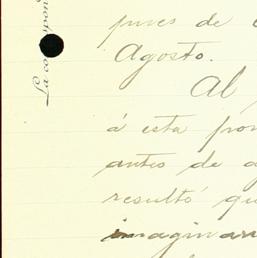 La correspon
pues de
Agosto.
Al
á esta pron
antes de a
resultó qu
imaginari